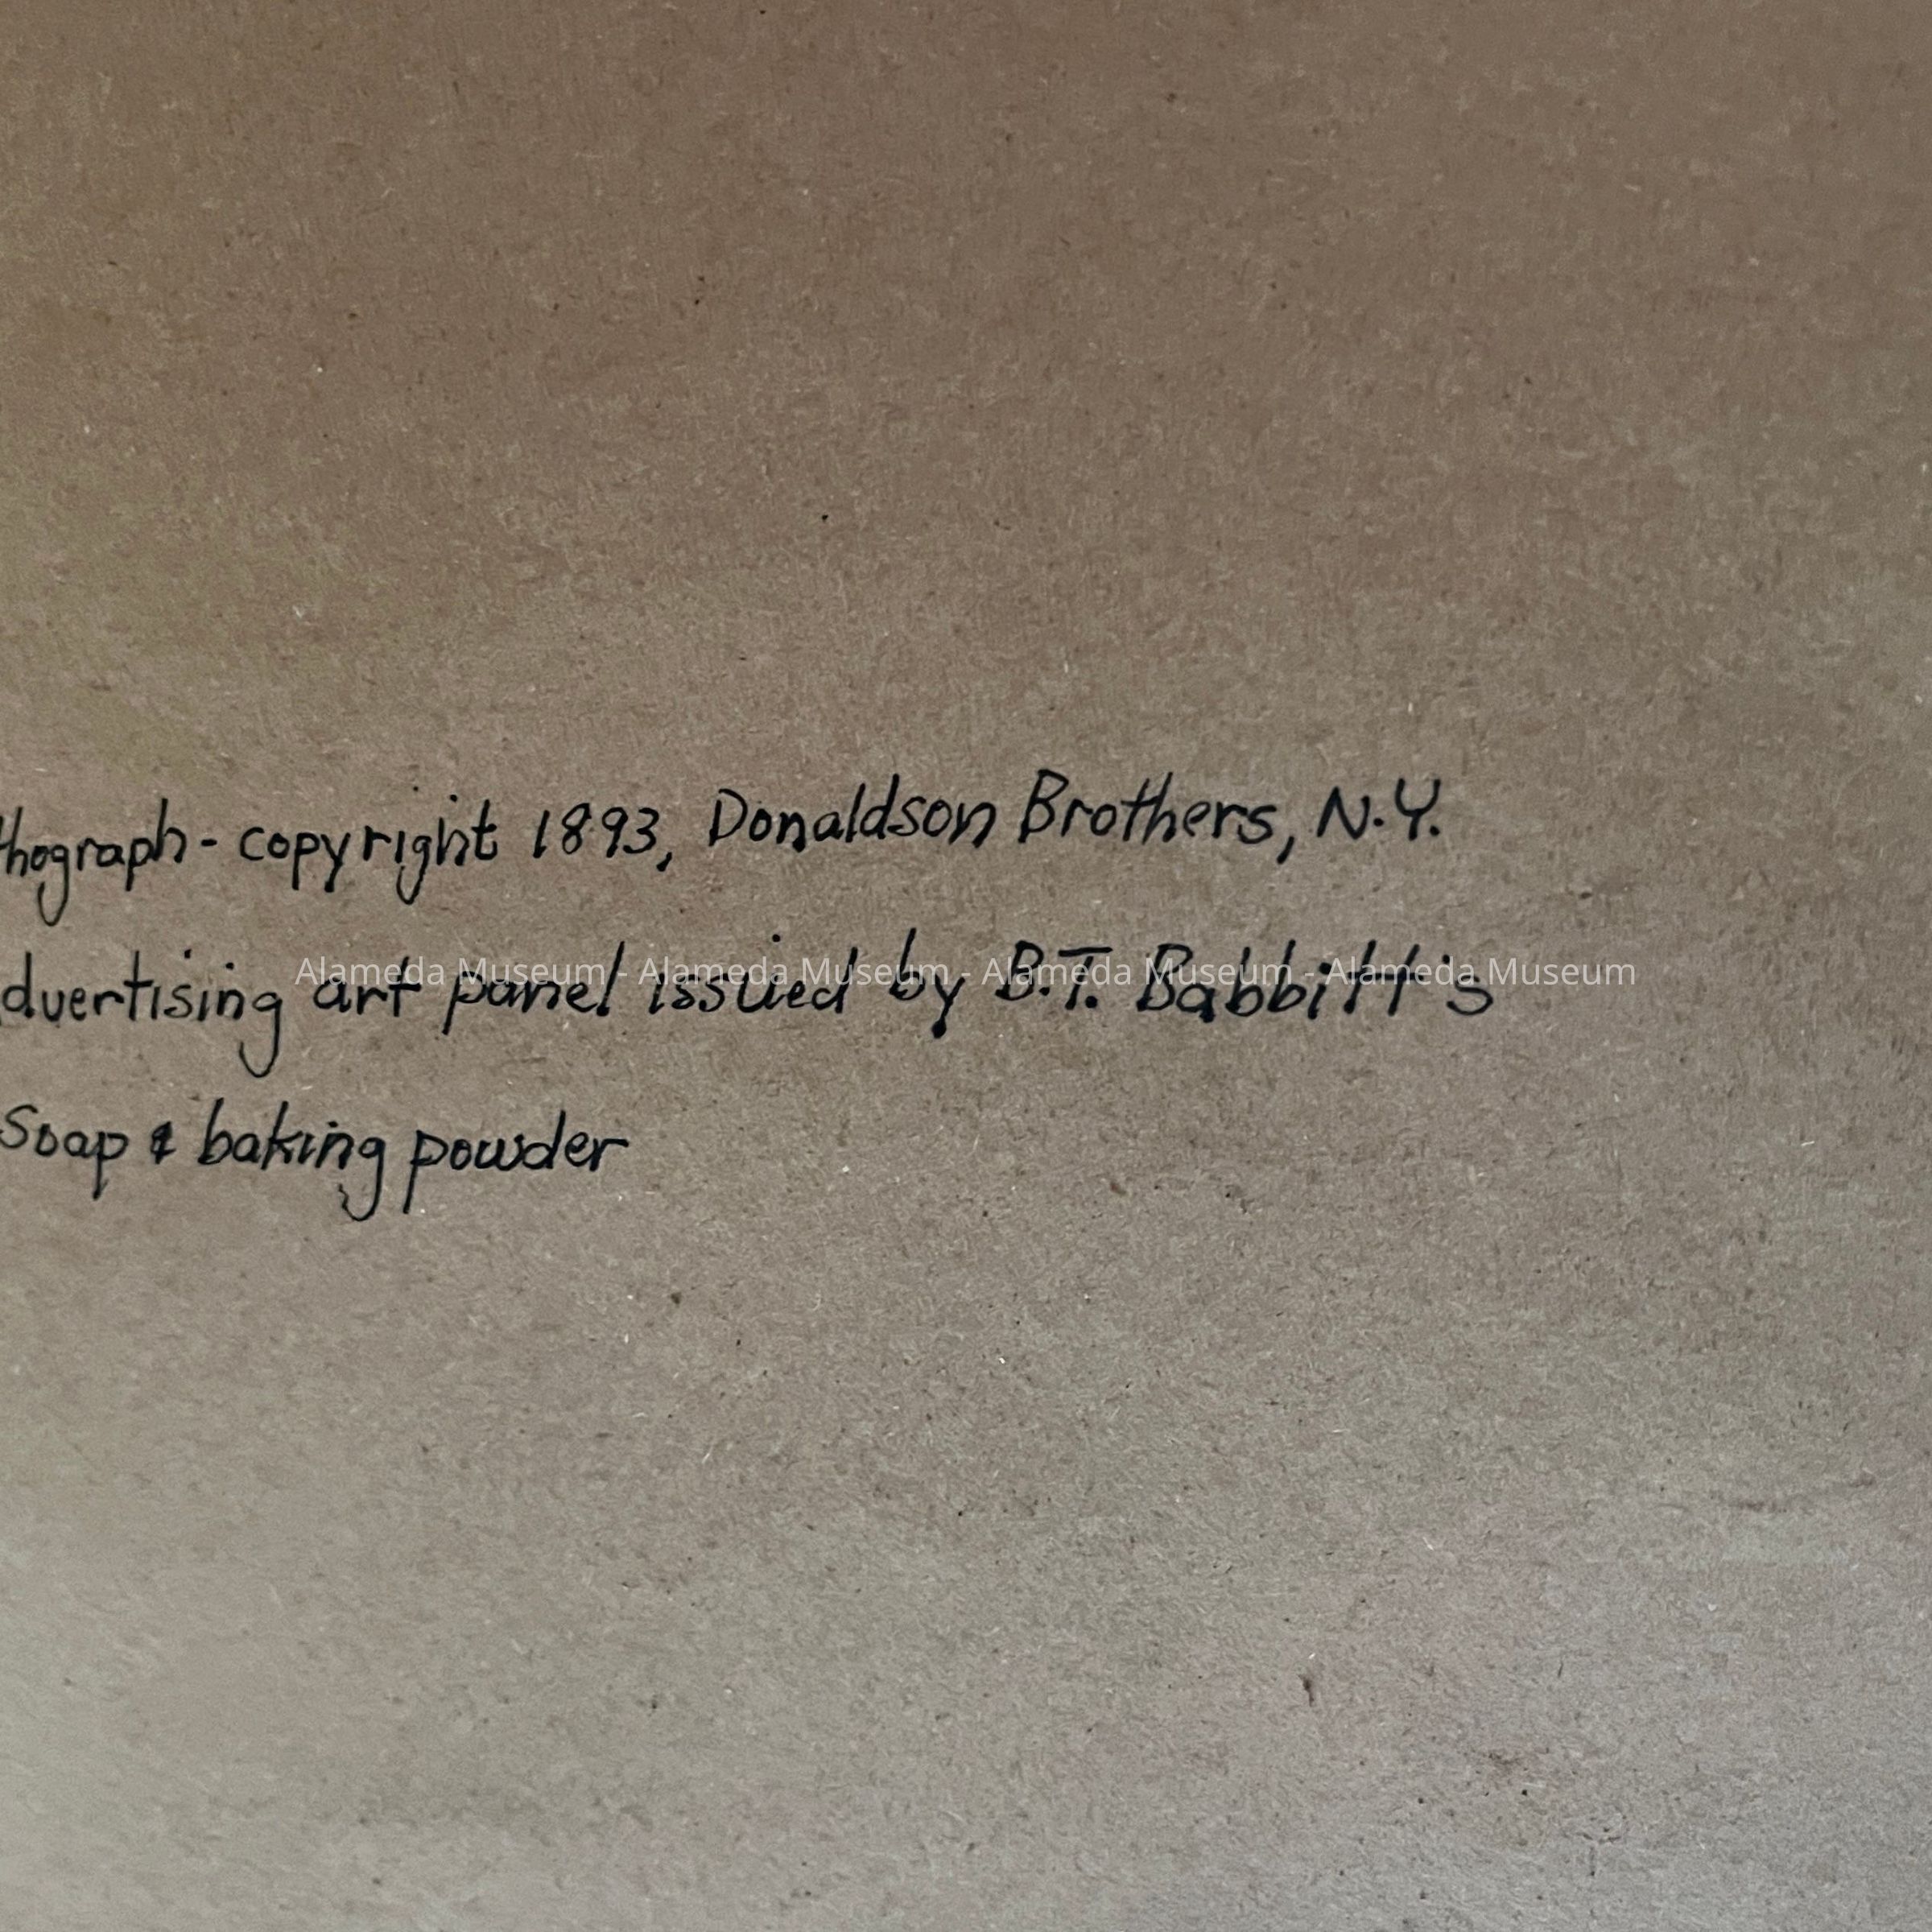 thograph - copyright 1893, Donaldson Brothers, N.Y.
dvertising art panel issued by B.T. Babbitt's
Alameda Museum - Alameda Museum - Alameda Museum - Alameda Museum
Soap & baking powder